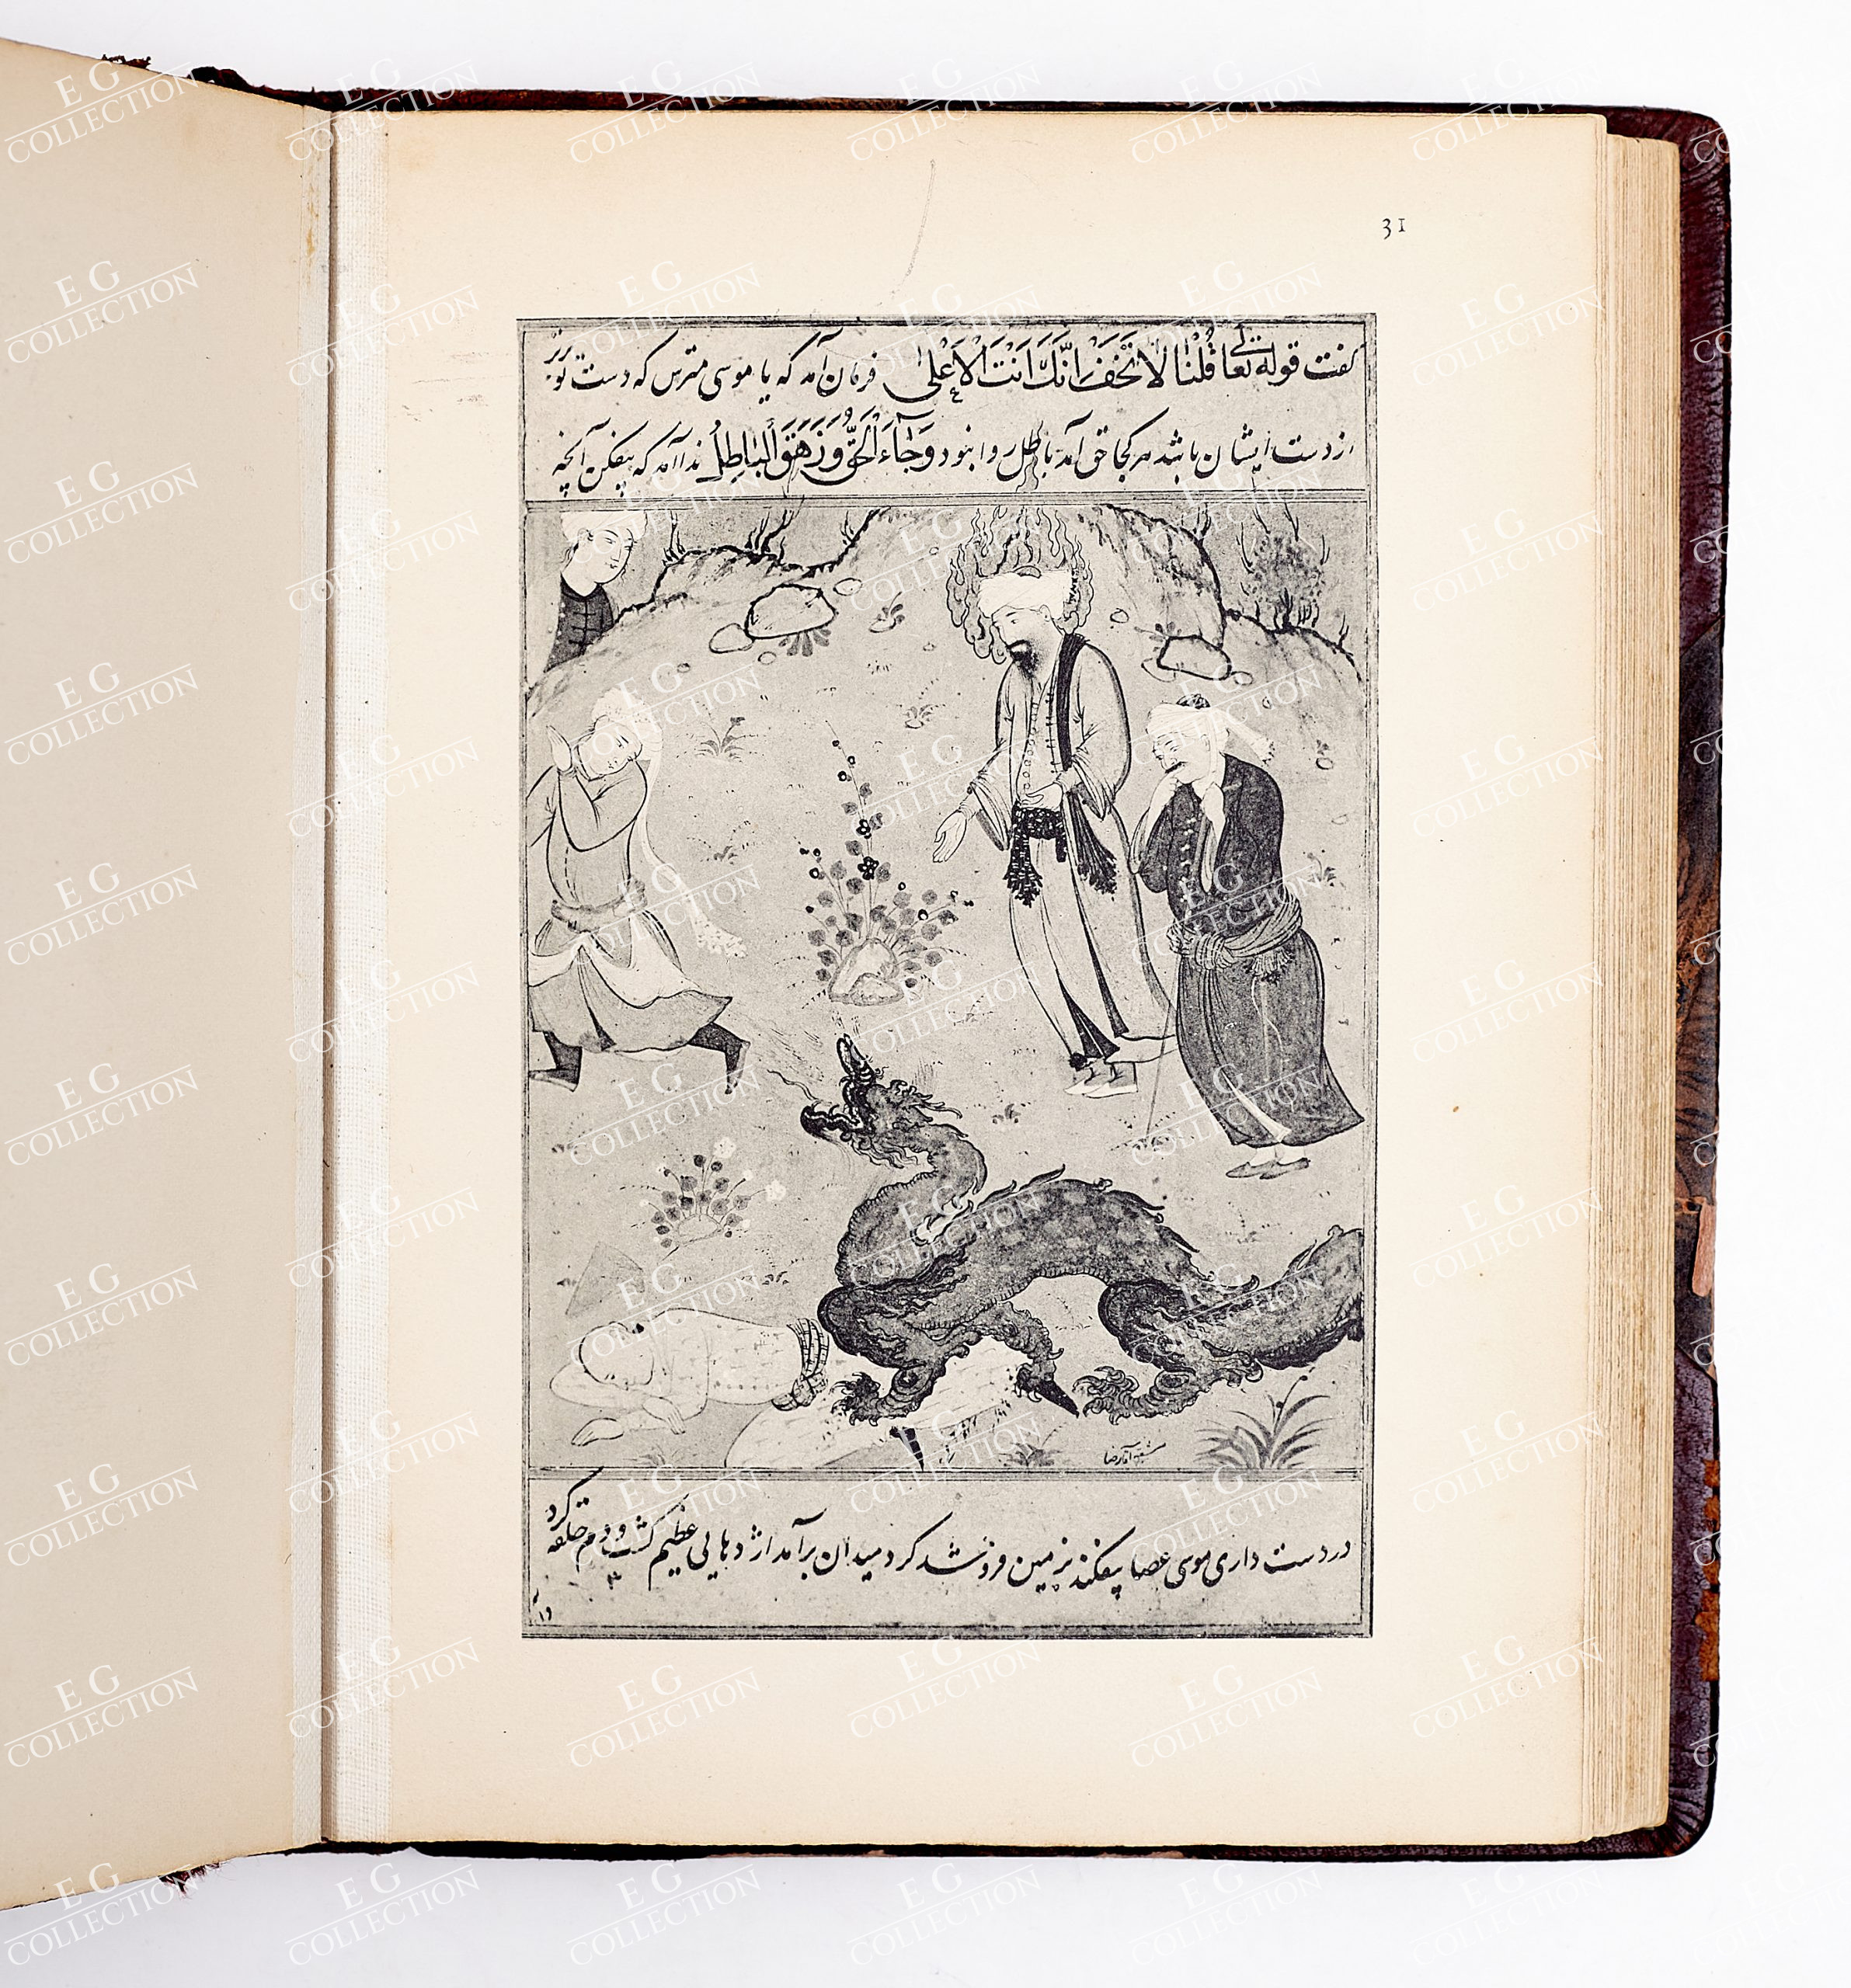 31
گفت قوله تعالی قُلْنَا لَا تَخَفْ اِنَّكَ اَنْتَ الْاَعْلٰی فرمان آمد که یا موسی مترس که دست تو بر
از دست ایشان باشد هر کجا حق آمد باطل روا نبود وَجَاءَ الْحَقُّ وَزَهَقَ الْبَاطِلُ ندا آمد که بیفکن آنچه
مشقه آقا رضا
در دست داری موسی عصا بیفکند بزمین فرو شد گرد میدان برآمد اژدهایی عظیم گشت و دم حلقه کرد
E G COLLECTION